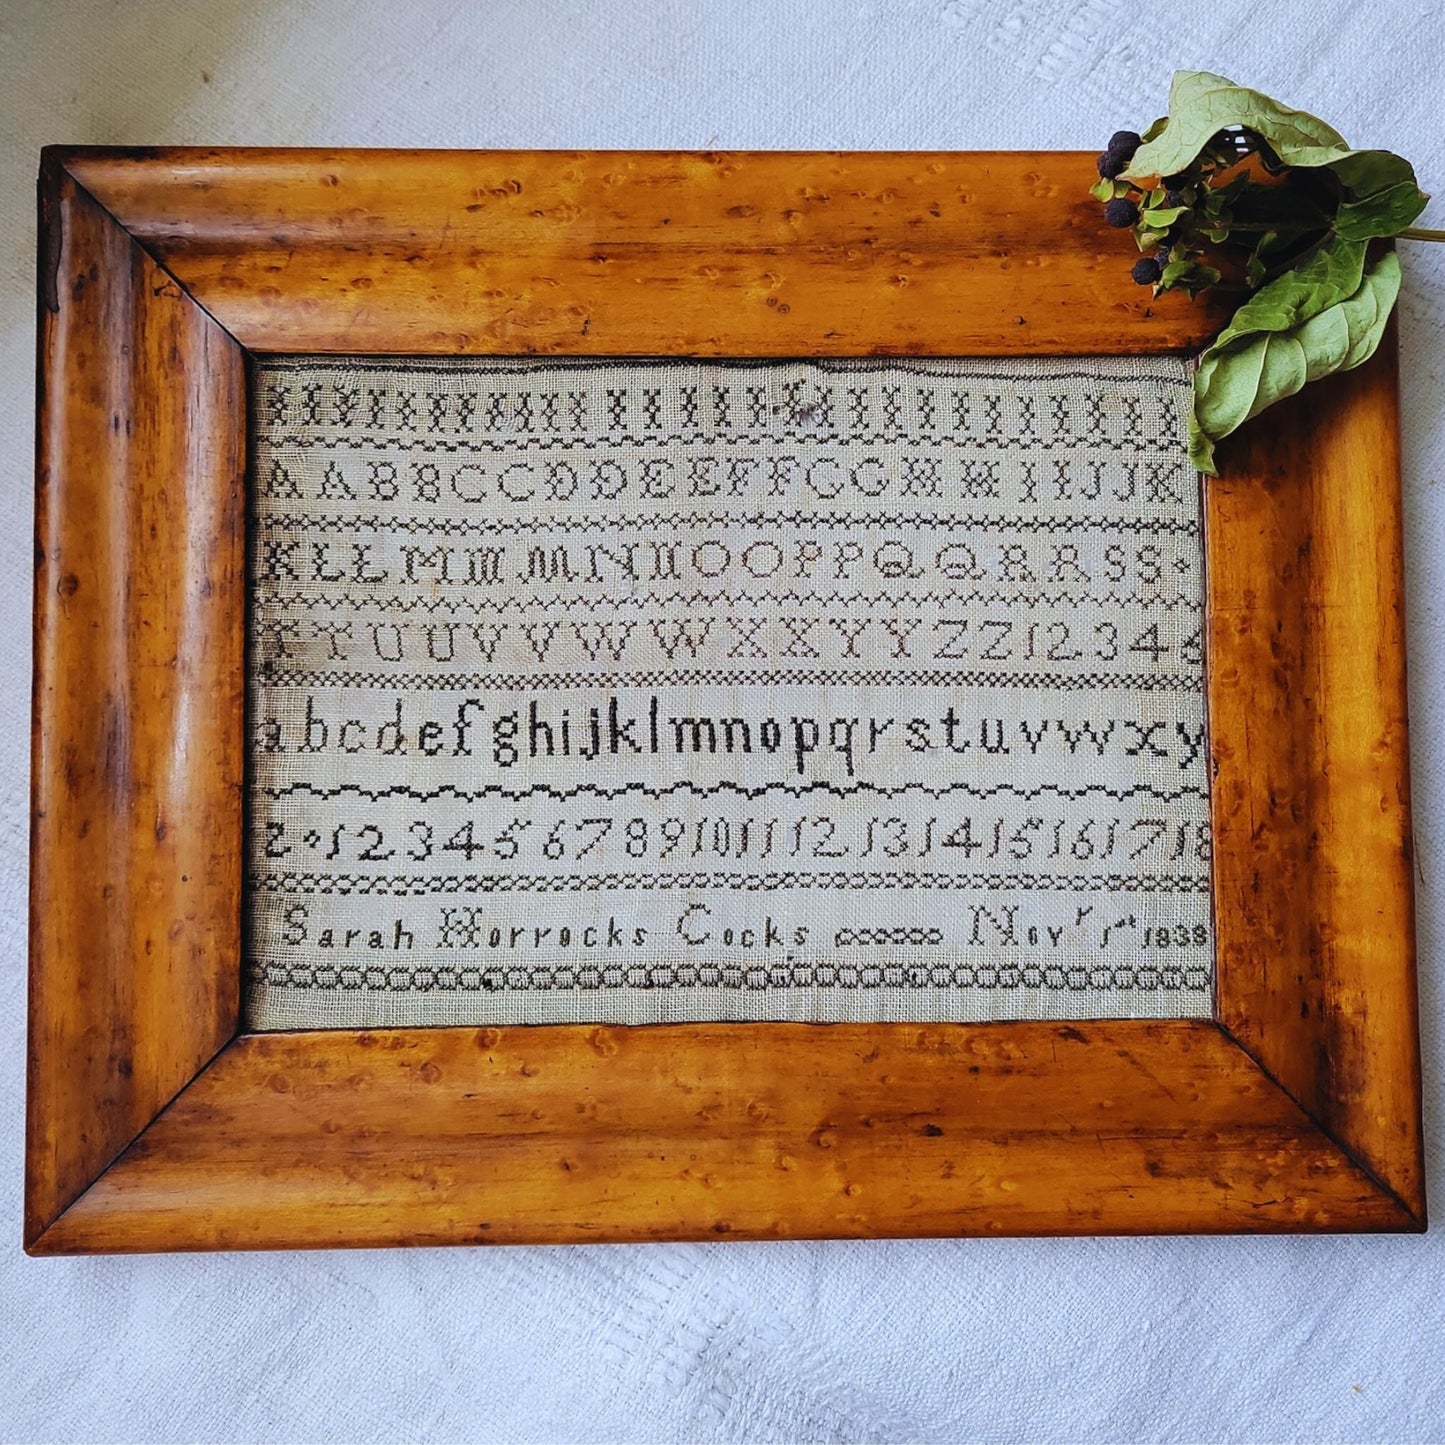 A A B B C C D D E E F F G G H H I I J J K
K L L M M M N N O O P P Q Q R R S S
T T U U V V W W X X Y Y Z Z 1 2 3 4 6
a b c d e f g h i j k l m n o p q r s t u v w x y
z 1 2 3 4 5 6 7 8 9 10 11 12 13 14 15 16 17 18
Sarah Horrocks Cocks Novr 1st 1838